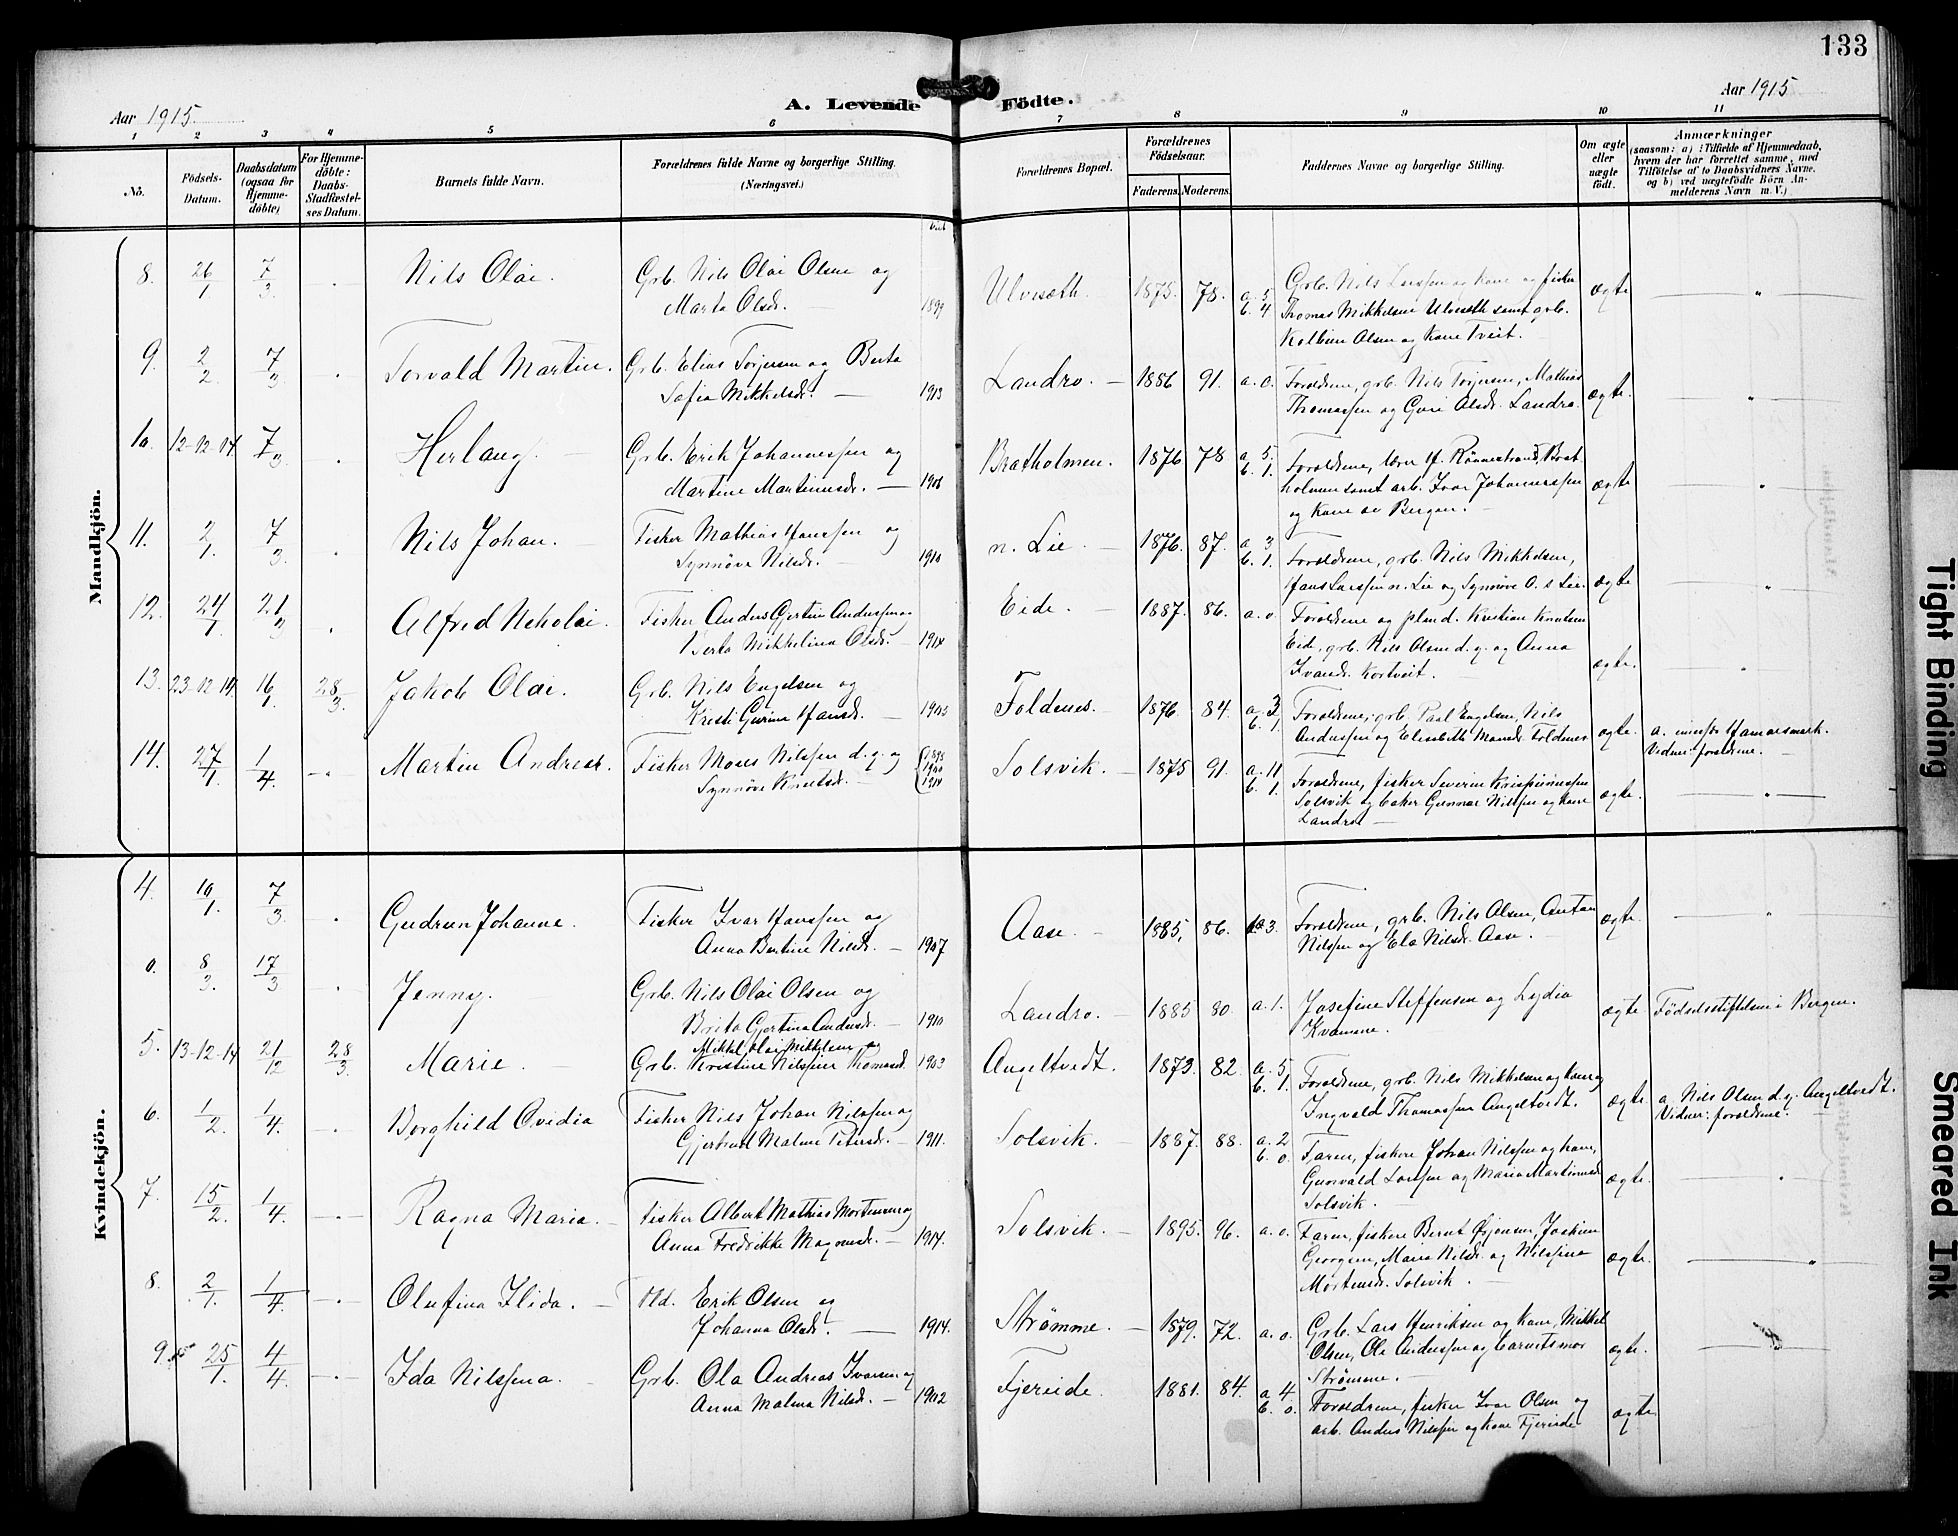 133
Aar 1915
A. Levende Födte.
Aar 1915
1 2 3 4 5 6 7 8 9 10 11
No.
Födsels-
Datum.
Daabsdatum
(ogsaa for
Hjemme-
döbte)
For Hjemme-
döbte:
Daabs-
Stadfæstel-
ses Datum.
Barnets fulde Navn.
Forældrenes fulde Navne og borgerlige Stilling.
(Næringsvei.)
Forældrenes Bopæl.
Forældrenes
Födselsaar.
Faderens. Moderens.
Faddernes Navne og borgerlige Stilling.
Om ægte
eller
uægte
født.
Anmærkninger
(saasom: a) i Tilfælde af Hjemmedaab,
hvem der har forrettet samme, med
Tilföielse af to Daabsvidners Navne,
og b) ved uægtefödte Börn An-
melderens Navn m. V.)
Mandkjön.
8. 26/1 7/3 Nils Olai. Grb. Nils Olai Olsen og
Marta Olsdr. 1899
Ulvesæth. 1875. 78. a. 5 b. 4
Grb. Nils Larssen og Kone og fisker
Thomas Mikkelsen Ulveseth samt grb.
Kolbein Olsen og Kone Tveit. ægte
9. 2/2 7/3 Torvald Martin. Grb. Elias Torjersen og Berta
Sofia Mikkelsdr. 1913
Landro. 1886 91. a. 0.
Forældrene, grb. Nils Torjersen, Mathias
Thomassen og Guri Olsdr. Landro. ægte.
10. 12-12-14 7/3. Herlaug. Grb. Erik Johannessen og
Martine Martinusdr. 1906
Bratholmen. 1876 78. a 5. b. 1.
Forældrene, lærer H. Rönnestrand, Brat-
holmen samt arb. Ivar Johannessen
og Kone av Bergen. ægte
11. 2/1. 7/3. Nils Johan. Fisker Mathias Hanssen og
Synnöve Nilsdr. 1910
n. Lie. 1876. 87. a 3 b. 1.
Forældrene, grb. Nils Mikkelsen,
Hans Larssen n. Lie og Synnöve O. s Lie. ægte
12. 24/1. 21/3 Alfred Nikolai. Fisker Anders Gjertin Anderssen og
Berta Mikkelina Olsdr. 1914
Eide. 1887. 86. a. 0.
Forældrene og pland. Kristian Knutsen
Eide, grb. Nils Olsen d. y. og Anna
Ivarsd. Kortveit. ægte.
13. 23-12-14 16/1 28/3. Jakob Olai. Grb. Nils Engelsen og
Kristi Gurine Hansdr. 1903
Foldenes. 1876. 84. a. 3 b. 1.
Forældrene, grb. Paul Engelsen, Nils
Anderssen og Elisabeth Monsdr Foldenes ægte.
Vidner: forældrene.
14. 27/1. 1/4 Martin Andreas. Fisker Mons Nilssen d. y. og
Synnöve Knutsd. 1895 1900 1914
Solsvik. 1875 91. a. 11 b. 1.
Forældrene, fisker Severin Kristiannssen
Solsvik og baker Gunnar Nilssen og kone
Landro ægte.
Kvindekjön.
4. 10/1. 7/3. Gudrun Johanne. Fisker Ivar Hanssen og
Anna Bertine Nilsdr. 1907
Aase. 1885, 86. a 3.
Forældrene, grb. Nils Olsen, Anton
Nilssen og Ela Nilsdr. Aase. ægte.
0. 8/3. 17/3 Jenny. Grb. Nils Olai Olsen og
Brita Gjertina Andersdr. 1910
Landro. 1885 80. a. 1.
Josefine Steffensen og Lydia
Kvamme. ægte Födselsstiftelsen i Bergen.
5. 13-12-14 21/12 28/3. Marie. Mikkel Olai Mikkelsen og
Grb. Kristine Nilssine Thomasd. 1903
Angeltvedt. 1873. 82. a. 5 b. 1.
Forældrene, grb. Nils Mikkelsen og kone og
Ingvald Thomassen Angeltvedt. ægte
a. Nils Olsen d. y. Angeltvedt.
Vidner: forældrene.
6. 1/2. 1/4. Borghild Ovidia Fisker Nils Johan Nilssen og
Gjertrud Malene Petersdr. 1911.
Solsvik. 1887. 88. a. 2 b. 0.
Faren, fisker Johan Nilssen og kone,
Gunvald Larssen og Maria Martinusdr
Solsvik. ægte.
7. 15/2. 1/4. Ragna Maria. Fisker Albert Mathias Mortensen og
Anna Fredrikke Magnusdr. 1914.
Solsvik. 1895. 96. a. 0.
Georgsen, Maria Nilsdr. og Nilssina
Mortensdr. Solsvik. ægte.
8. 2/1. 1/4. Olufina Ilida. Erik Olsen og
Johanna Olsdr. 1914.
Strömme. 1879. 72. a. 0.
Grb. Lars Henriksen og Kone, Mikkel
Olsen, Ole Anderssen og barnets mor
Strömme. ægte.
9. 25/1. 4/4. Ida Nilssina. Grb. Ola Andreas Ivarsen og
Anna Malena Nilsd. 1902
Fjereide. 1881. 84. a 4. b. 0.
Forældrene, fisker Ivar Olsen og
arb. Anders Nilssen og Kone Fjereide ægte.
Tight Binding
Smeared Ink